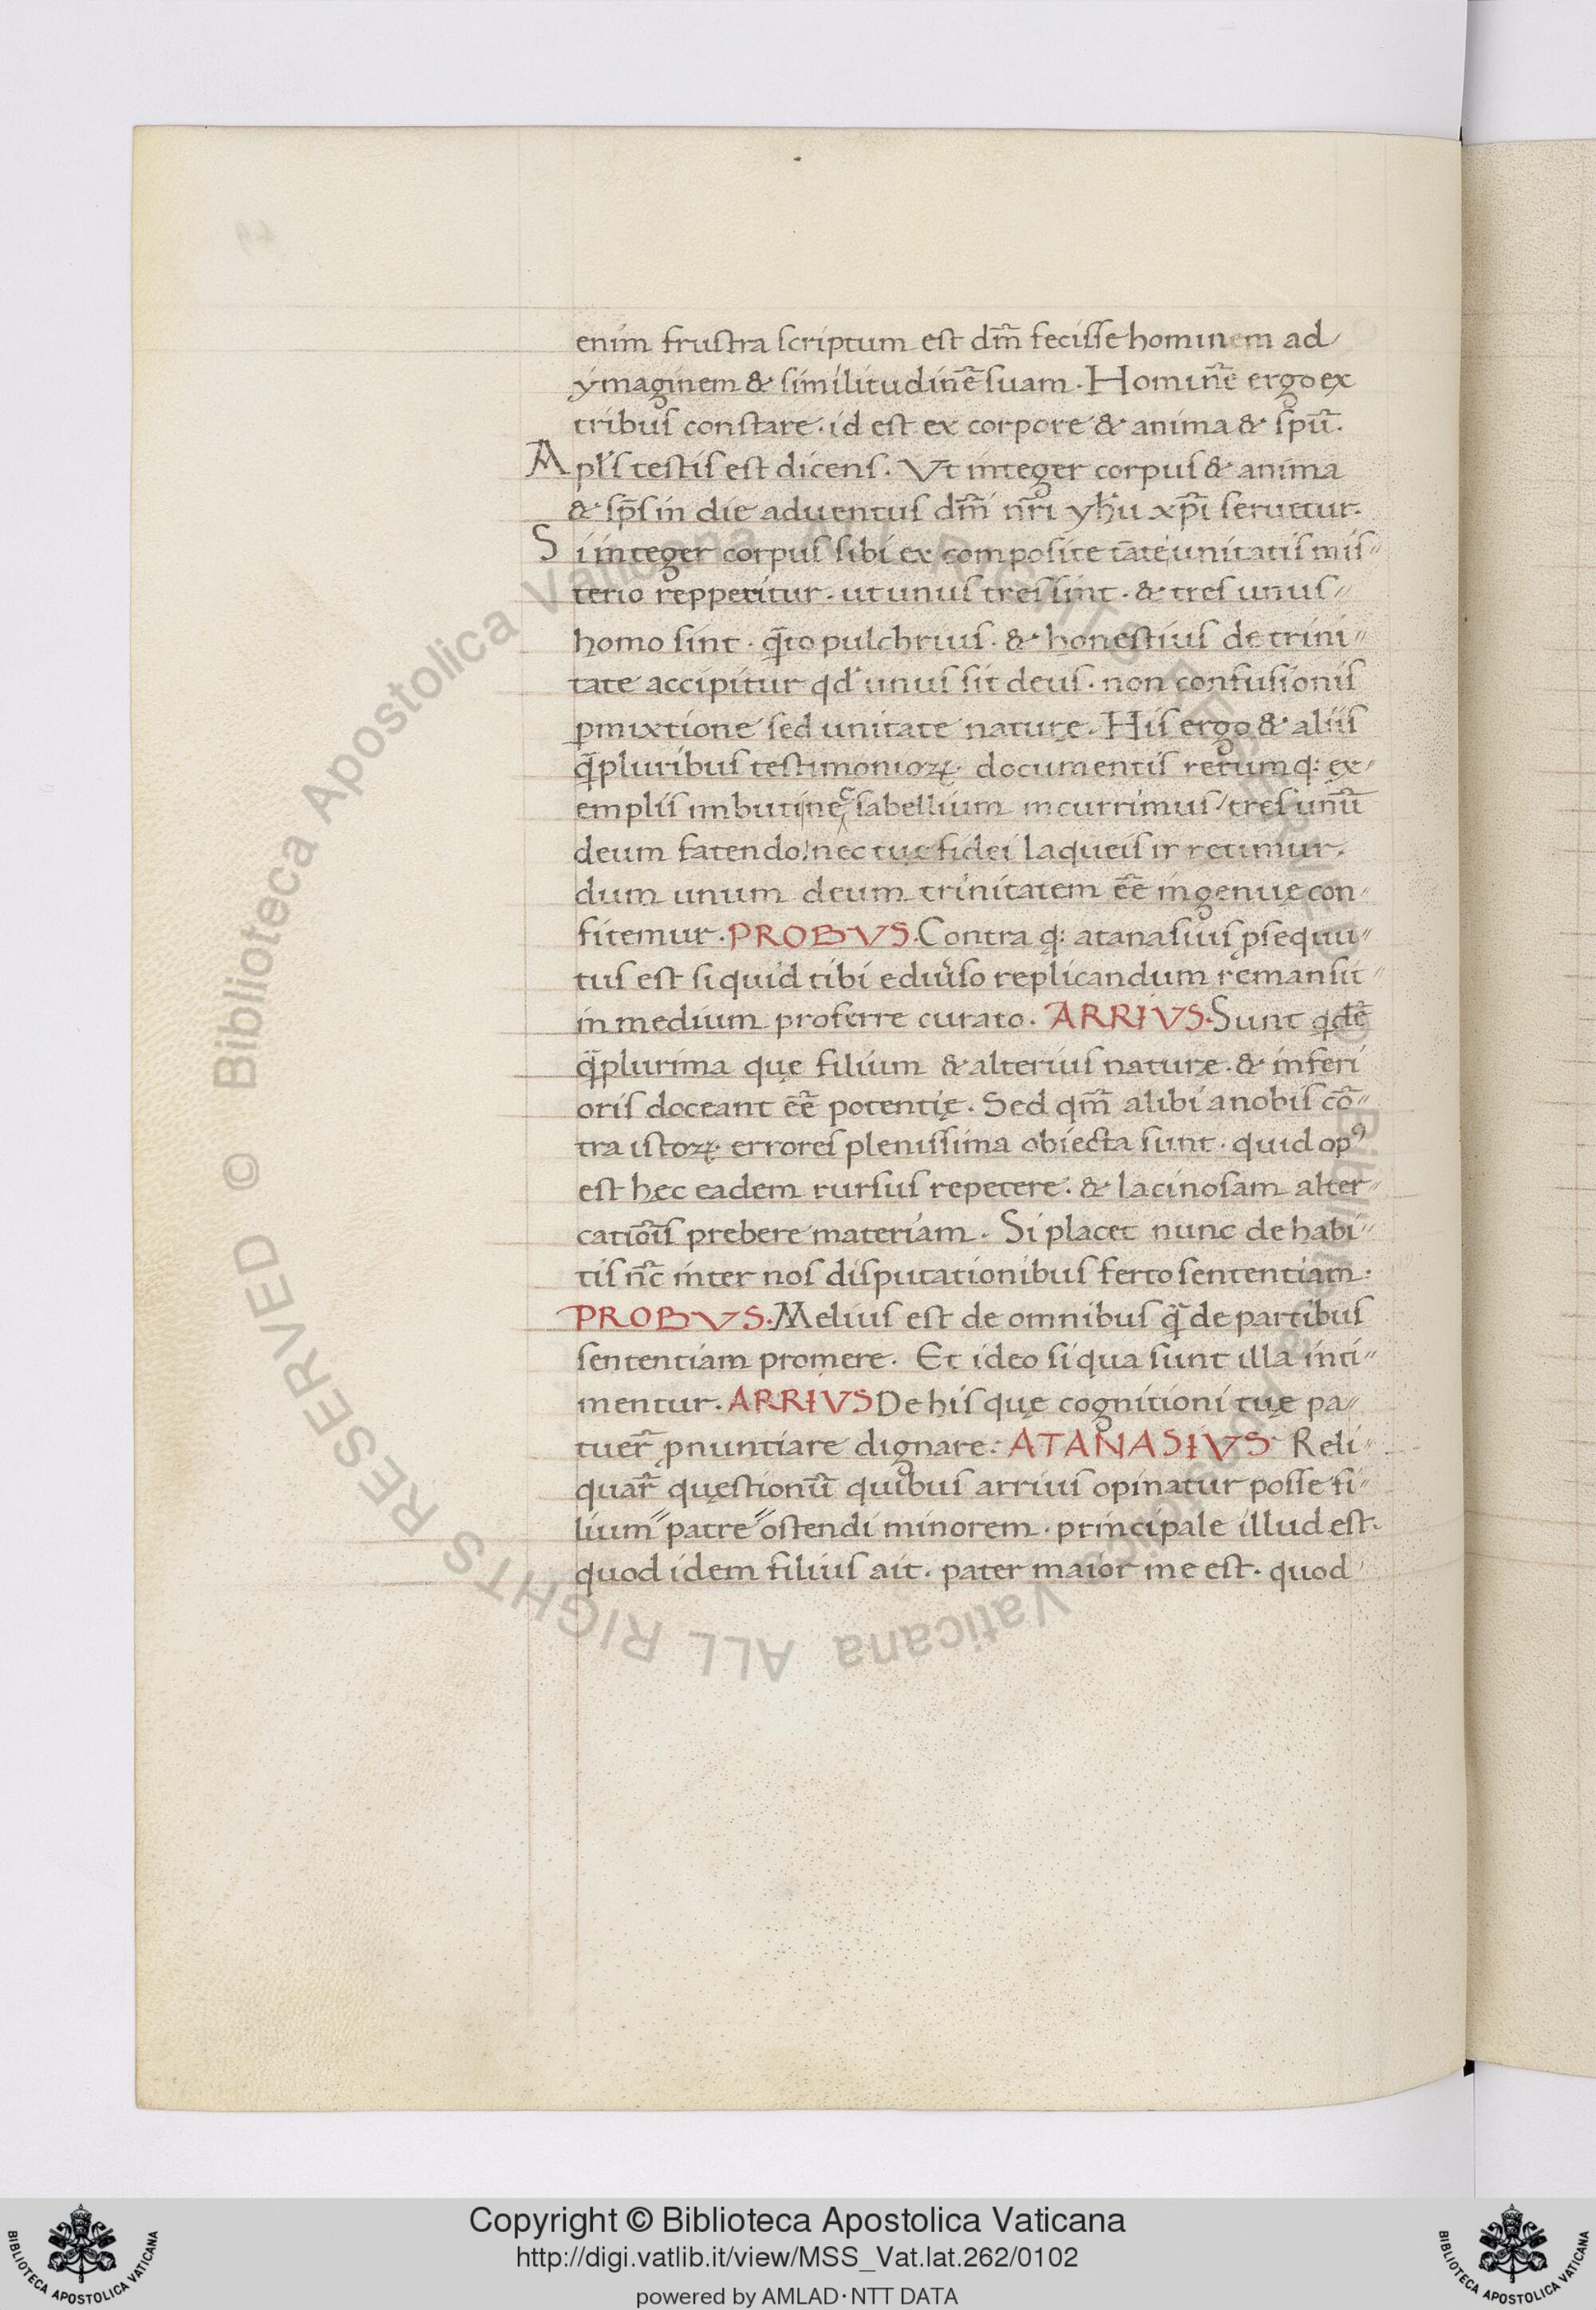 enim frustra scriptum est dm̃ fecisse hominem ad
ymaginem & similitudinẽ suam. Hominẽ ergo ex
tribus constare. id est ex corpore & anima & spũ.
Apl's testis est dicens. Vt integer corpus & anima
& sp̃s in die aduentus dm̃i nr̃i yh̃u xp̃i seruetur.
Si integer corpus sibi ex composite tãte unitatis mis〃
terio repperitur. ut unus tres sint. & tres unus〃
homo sint. q̃to pulchrius. & honestius de trini〃
tate accipitur qd' unus sit deus. non confusionis
ꝑmixtione sed unitate naturę. His ergo & aliis
q̃pluribus testimonioꝝ. documentis rerumq: ex/
emplis imbuti nec sabellium incurrimus / tres unũ
deum fatendo. nec tuę fidei laqueis irretimur.
dum unum deum trinitatem eẽ ingenue con〃
fitemur. PROBVS. Contra q: atanasius ꝓsequu〃
tus est si quid tibi ediu'so replicandum remansit〃
in medium proferre curato. ARRIVS. Sunt qdẽ
q̃plurima quę filium & alterius naturę. & inferi
oris doceant eẽ potentię. Sed qm̃ alibi a nobis cõ〃
tra istoꝝ. errores plenissima obiecta sunt. quid opꝰ
est hęc eadem rursus repetere. & lacinosam alter〃
catiõis prebere materiam. Si placet nunc de habi〃
tis nc̃ inter nos disputationibus ferto sententiam.
PROBVS. Melius est de omnibus q̃ de partibus
sententiam promere. Et ideo si qua sunt illa inti〃
mentur. ARRIVS De his quę cognitioni tuę pa〃
tuer̃ ꝓnuntiare dignare. ATANASIVS Reli〃
quar̃ quęstionũ quibus arrius opinatur posse fi〃
lium〃 patre〃 ostendi minorem. principale illud est.
quod idem filius ait. pater maior me est. quod
Copyright © Biblioteca Apostolica Vaticana
http://digi.vatlib.it/view/MSS_Vat.lat.262/0102
powered by AMLAD·NTT DATA
© Biblioteca Apostolica Vaticana ALL RIGHTS RESERVED
© Biblioteca Apostolica Vaticana ALL RIGHTS RESERVED
BIBLIOTECA APOSTOLICA VATICANA
BIBLIOTECA APOSTOLICA VATICANA